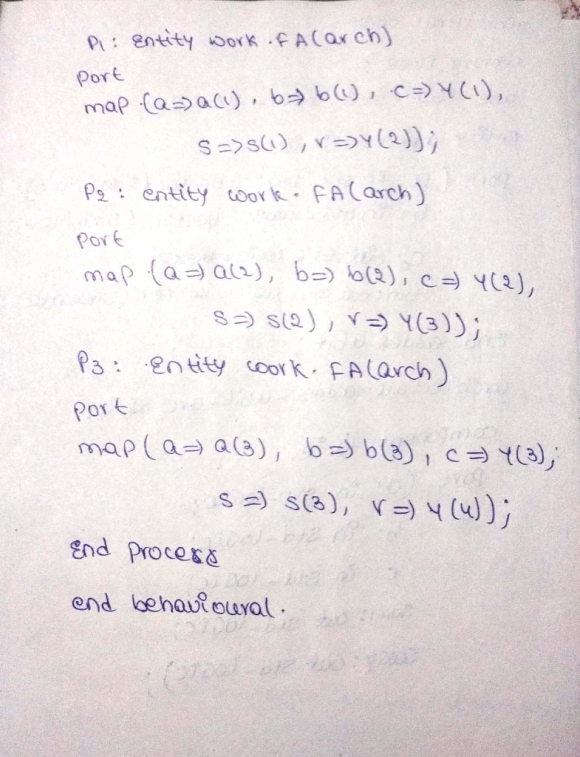 P1 : Entity work . FA(arch)
port
map (a=>a(1) , b=> b(1) , c=>Y(1),
s=>s(1) , r=>Y(2));
P2 : entity work . FA(arch)
port
map (a=> a(2), b=> b(2), c=> Y(2),
s=> s(2) , r=> Y(3));
P3 : Entity work . FA(arch)
port
map ( a=> a(3), b=> b(3) , c=> Y(3),
s=> s(3), r=> Y(4));
End process
end behavioural .